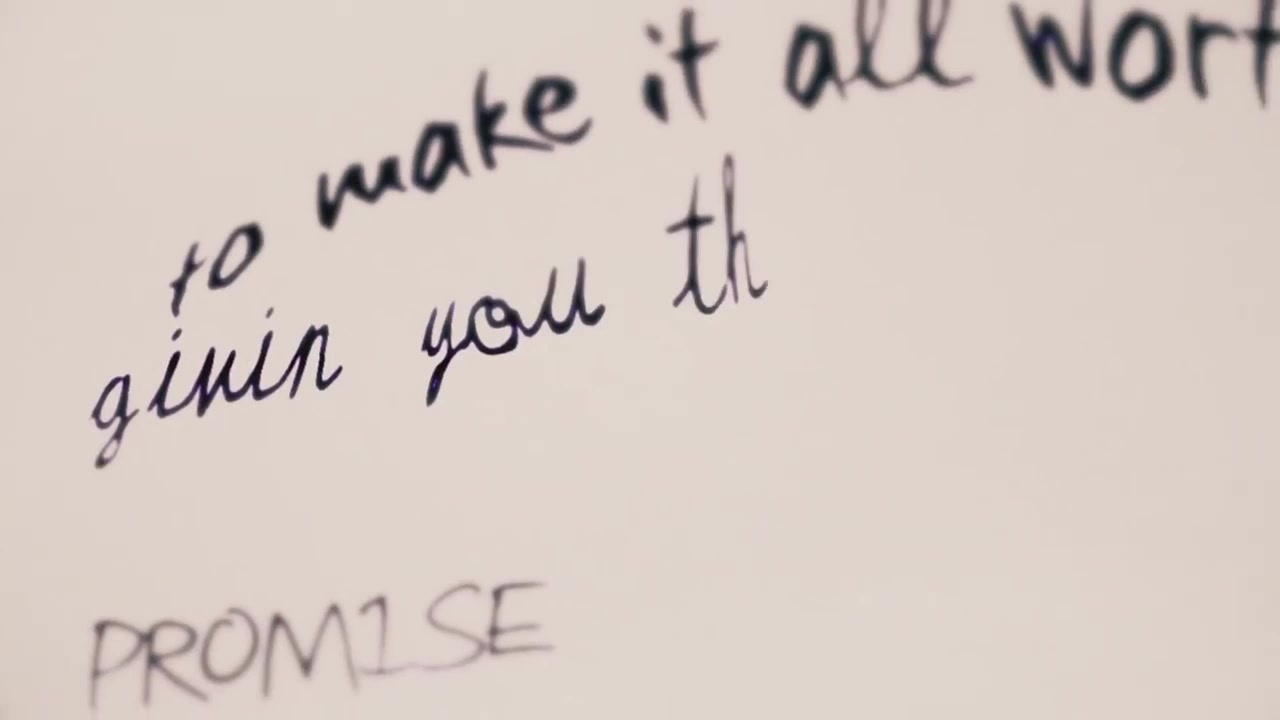 to make it all wort
givin you th
PROM1SE